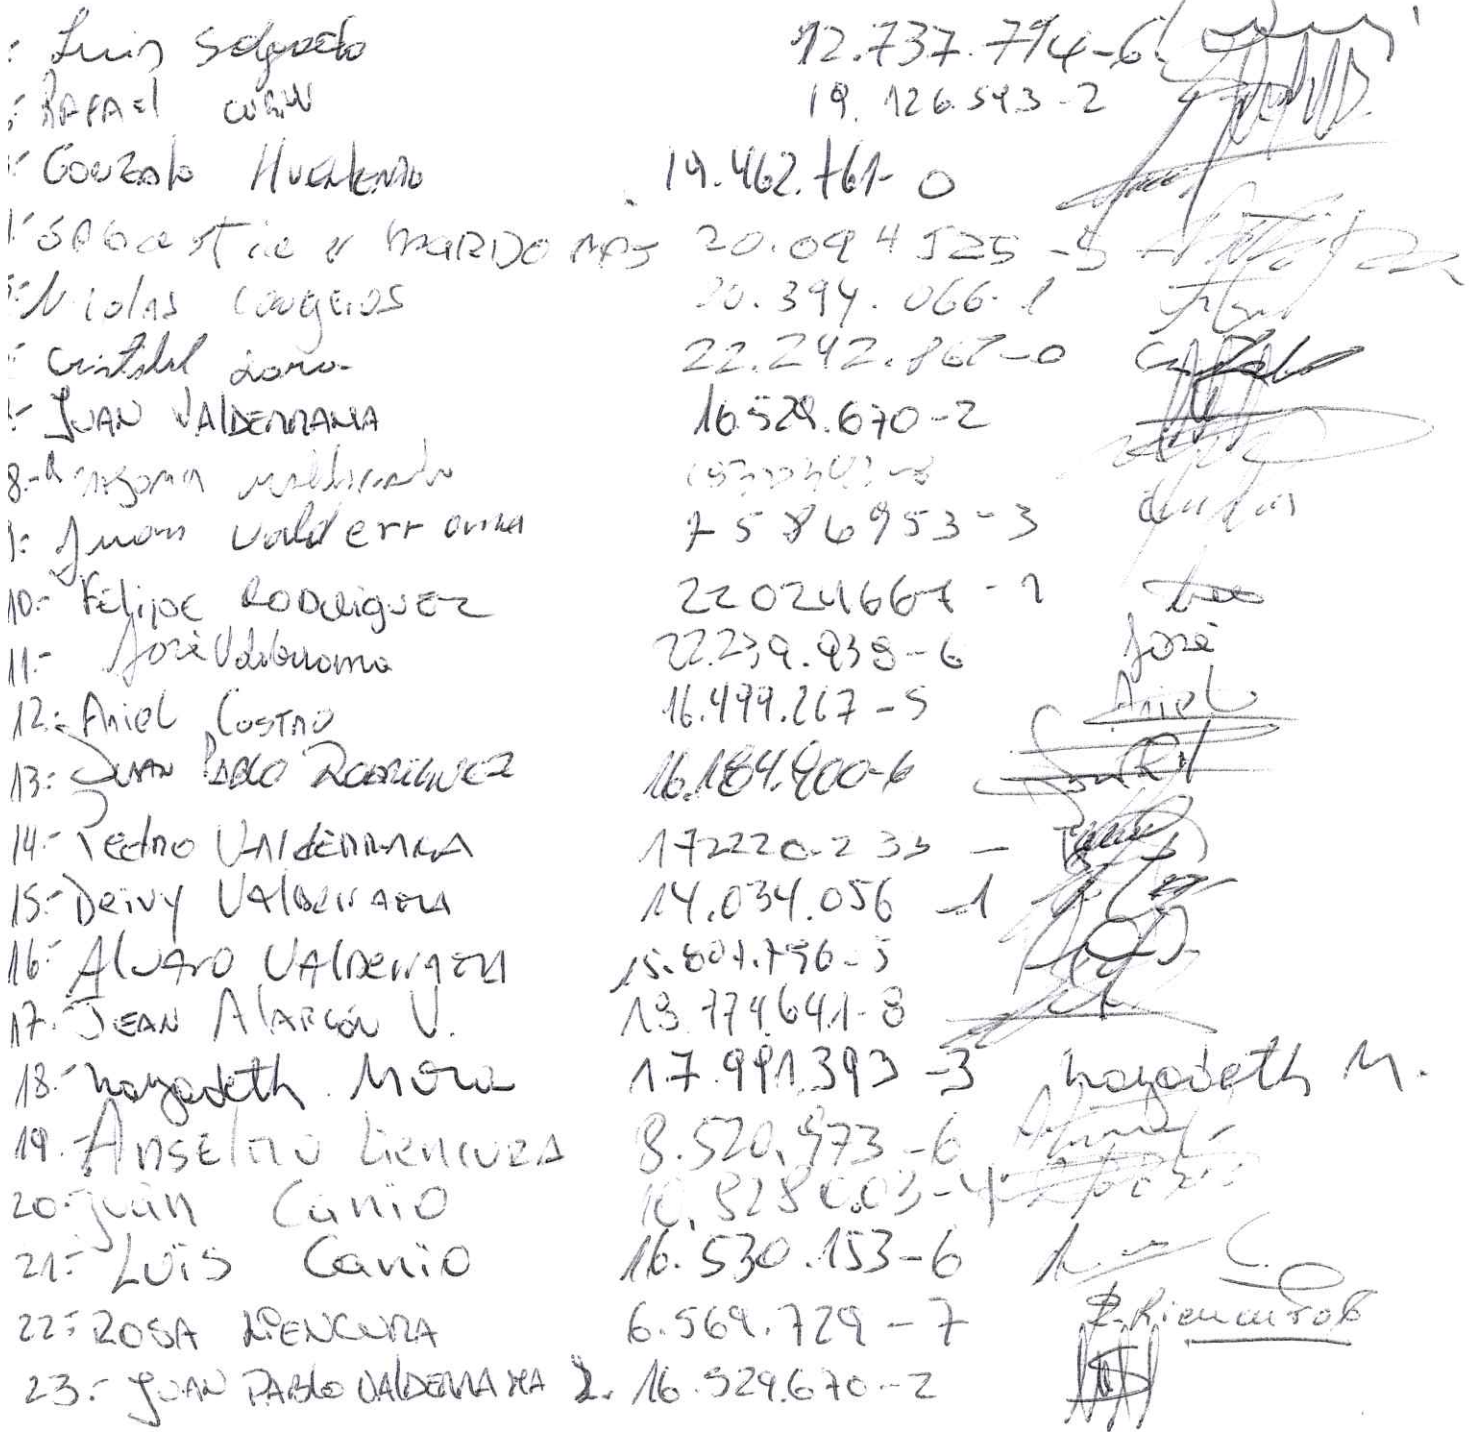 Luis Salgado 12.737.794-6
RAFAEl CURIN 19.126.593-2
Gonzalo HUENTENAO 19.462.761-0
SEbastian MARDONES 20.094525-5
Nicolas 20.394.066-1
Cristobal 22.242.867-0
JUAN VALDERRAMA 16.529.670-2
8.- maldonado
9.- Juan valderrama 7586953-3
10.- Felipe RODRIGUEZ 22024667-1
11.- José Valderrama 22.239.939-6 José
12.- Ariel CASTRO 16.499.267-5 Ariel
13.- JUAN PABLO RODRIGUEZ 16.184.900-6
14.- Pedro VALdERRAMA
15.- Deivy VALDERRAMA 14.034.056-1
16.- Alvaro VALDERRAMA
17.- JEAN AlARCÓN V. 19.774641-8
18.- nayadeth Mora 17.991.393-3 nayadeth M.
19.- ANSELMO LIENCURA 8.520.973-6
20.- juan Canio 10.828.003-4
21.- Luis Canio 16.530.153-6
22.- ROSA LIENCURA 6.569.729-7
23.- JUAN PABLO VALDERRAMA 16.529.670-2